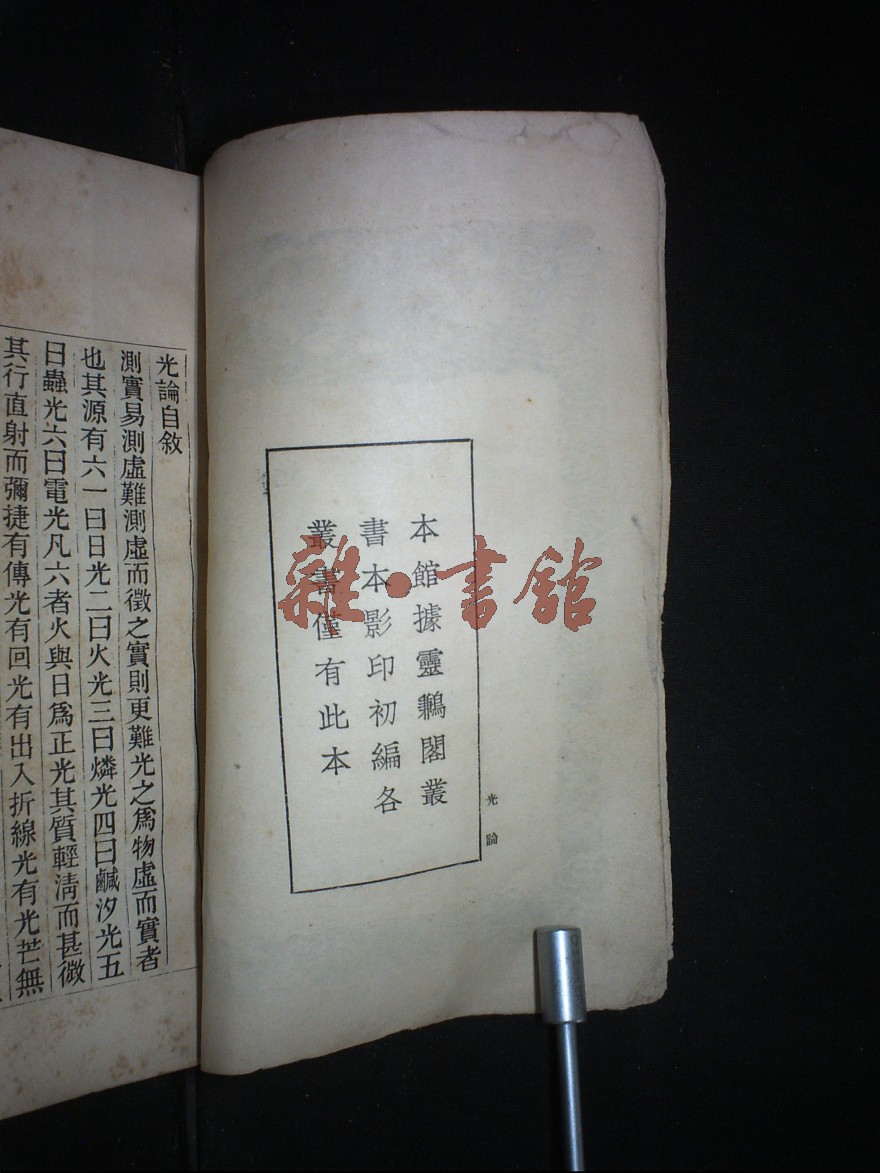 本館據靈鶼閣叢
書本影印初編各
叢書僅有此本
光論
雜·書館
光論自敘
測實易測虛難測虛而徵之實則更難光之為物虛而實者
也其源有六一曰日光二曰火光三曰燐光四曰鹹汐光五
曰蟲光六曰電光凡六者火與日爲正光其質輕淸而甚微
其行直射而彌捷有傳光有回光有出入折線光有光芒無